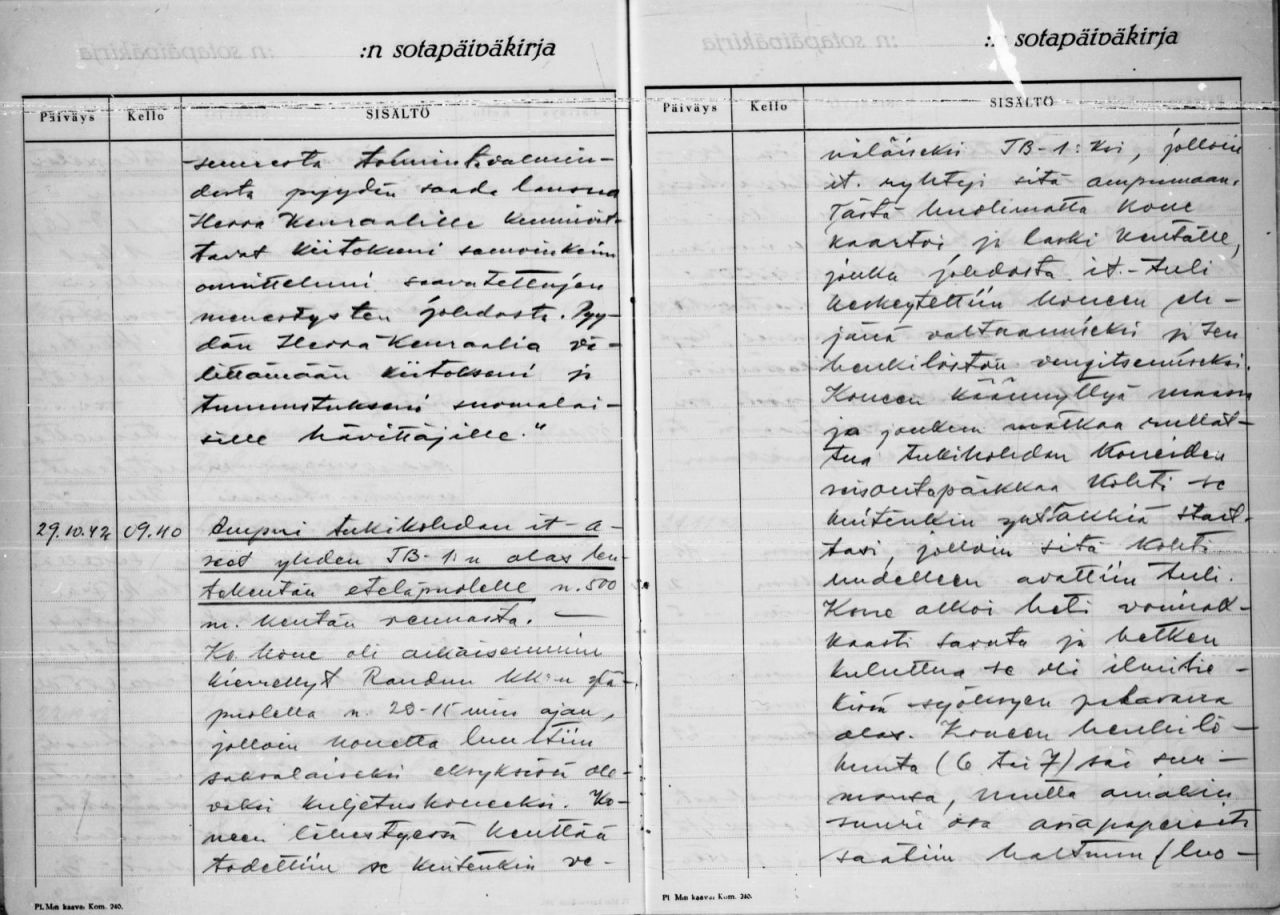 :n sotapäiväkirja
Päiväys Kello SISÄLTÖ
semesta toimintavalmiu-
desta pyydän saada lausua
Herra Kenraalille kunnioit-
tavat kiitokseni samoinkuin
onnitteluni saavutettujen
menestysten johdosta. Pyy-
dän Herra Kenraalia vä-
littämään kiitokseni ja
tunnustukseni suomalai-
sille hävittäjille."
29.10.42 09.40 Ampui tukikohdan it-a-
seet yhden TB-1:n alas len-
tokentän eteläpuolelle n. 500
m. kentän reunasta. —
Ko. kone oli aikaisemmin
kierrellyt Raudun kk:n ylä-
puolella n. 20-15 min ajan,
jolloin konetta luultiin
saksalaiseksi eksyksissä ole-
vaksi kuljetuskoneeksi. Ko-
neen lähestyessä kenttää
todettiin se kuitenkin ve-
Pl. M:n kaava: Kom. 240.
:n sotapäiväkirja
Päiväys Kello SISÄLTÖ
näläiseksi TB-1:ksi, jolloin
it. ryhtyi sitä ampumaan.
Tästä huolimatta kone
kaartoi ja laski kentälle,
jonka johdosta it.-tuli
keskeytettiin koneen eh-
jänä valtaamiseksi ja sen
henkilöstön vangitsemiseksi.
Koneen käännyttyä maassa
ja jonkun matkaa rullat-
tua tukikohdan koneiden
seisontapaikkaa kohti se
kuitenkin yhtäkkiä start-
tasi, jolloin sitä kohti
uudelleen avattiin tuli.
Kone alkoi heti voimak-
kaasti savuta ja hetken
kuluttua se oli ilmilie-
kissä syöksyen palavana
alas. Koneen henkilö-
kunta (6 tai 7) sai sur-
mansa, mutta ainakin
suuri osa asiapapereista
saatiin haltuun (luo-
Pl. M:n kaava: Kom. 240.